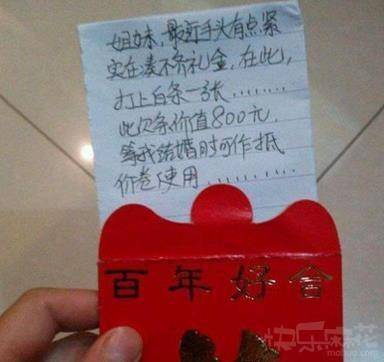 姐妹,最近手头有点紧
实在凑不齐礼金,在此,
打上白条一张........
此欠条价值800元,
等我结婚时可作抵
价卷使用..........
百年好合
快乐麻花